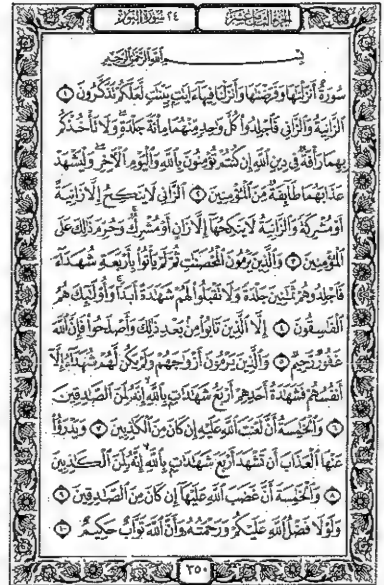 الجزء الثامن عشر
٢٤ سورة النور
بِسْمِ اللَّهِ الرَّحْمَٰنِ الرَّحِيمِ
سُورَةٌ أَنزَلْنَٰهَا وَفَرَضْنَٰهَا وَأَنزَلْنَا فِيهَآ ءَايَٰتٍۭ بَيِّنَٰتٍ لَّعَلَّكُمْ تَذَكَّرُونَ ١
ٱلزَّانِيَةُ وَٱلزَّانِى فَٱجْلِدُوا۟ كُلَّ وَٰحِدٍ مِّنْهُمَا مِا۟ئَةَ جَلْدَةٍ وَلَا تَأْخُذْكُم
بِهِمَا رَأْفَةٌ فِى دِينِ ٱللَّهِ إِن كُنتُمْ تُؤْمِنُونَ بِٱللَّهِ وَٱلْيَوْمِ ٱلْـَٔاخِرِ وَلْيَشْهَدْ
عَذَابَهُمَا طَآئِفَةٌ مِّنَ ٱلْمُؤْمِنِينَ ٢ ٱلزَّانِى لَا يَنكِحُ إِلَّا زَانِيَةً
أَوْ مُشْرِكَةً وَٱلزَّانِيَةُ لَا يَنكِحُهَآ إِلَّا زَانٍ أَوْ مُشْرِكٌ وَحُرِّمَ ذَٰلِكَ عَلَى
ٱلْمُؤْمِنِينَ ٣ وَٱلَّذِينَ يَرْمُونَ ٱلْمُحْصَنَٰتِ ثُمَّ لَمْ يَأْتُوا۟ بِأَرْبَعَةِ شُهَدَآءَ
فَٱجْلِدُوهُمْ ثَمَٰنِينَ جَلْدَةً وَلَا تَقْبَلُوا۟ لَهُمْ شَهَٰدَةً أَبَدًا وَأُو۟لَٰٓئِكَ هُمُ
ٱلْفَٰسِقُونَ ٤ إِلَّا ٱلَّذِينَ تَابُوا۟ مِنۢ بَعْدِ ذَٰلِكَ وَأَصْلَحُوا۟ فَإِنَّ ٱللَّهَ
غَفُورٌ رَّحِيمٌ ٥ وَٱلَّذِينَ يَرْمُونَ أَزْوَٰجَهُمْ وَلَمْ يَكُن لَّهُمْ شُهَدَآءُ إِلَّآ
أَنفُسُهُمْ فَشَهَٰدَةُ أَحَدِهِمْ أَرْبَعُ شَهَٰدَٰتٍۭ بِٱللَّهِ إِنَّهُۥ لَمِنَ ٱلصَّٰدِقِينَ
٦ وَٱلْخَٰمِسَةُ أَنَّ لَعْنَتَ ٱللَّهِ عَلَيْهِ إِن كَانَ مِنَ ٱلْكَٰذِبِينَ ٧ وَيَدْرَؤُا۟
عَنْهَا ٱلْعَذَابَ أَن تَشْهَدَ أَرْبَعَ شَهَٰدَٰتٍۭ بِٱللَّهِ إِنَّهُۥ لَمِنَ ٱلْكَٰذِبِينَ
٨ وَٱلْخَٰمِسَةَ أَنَّ غَضَبَ ٱللَّهِ عَلَيْهَآ إِن كَانَ مِنَ ٱلصَّٰدِقِينَ ٩
وَلَوْلَا فَضْلُ ٱللَّهِ عَلَيْكُمْ وَرَحْمَتُهُۥ وَأَنَّ ٱللَّهَ تَوَّابٌ حَكِيمٌ ١٠
٣٥٠